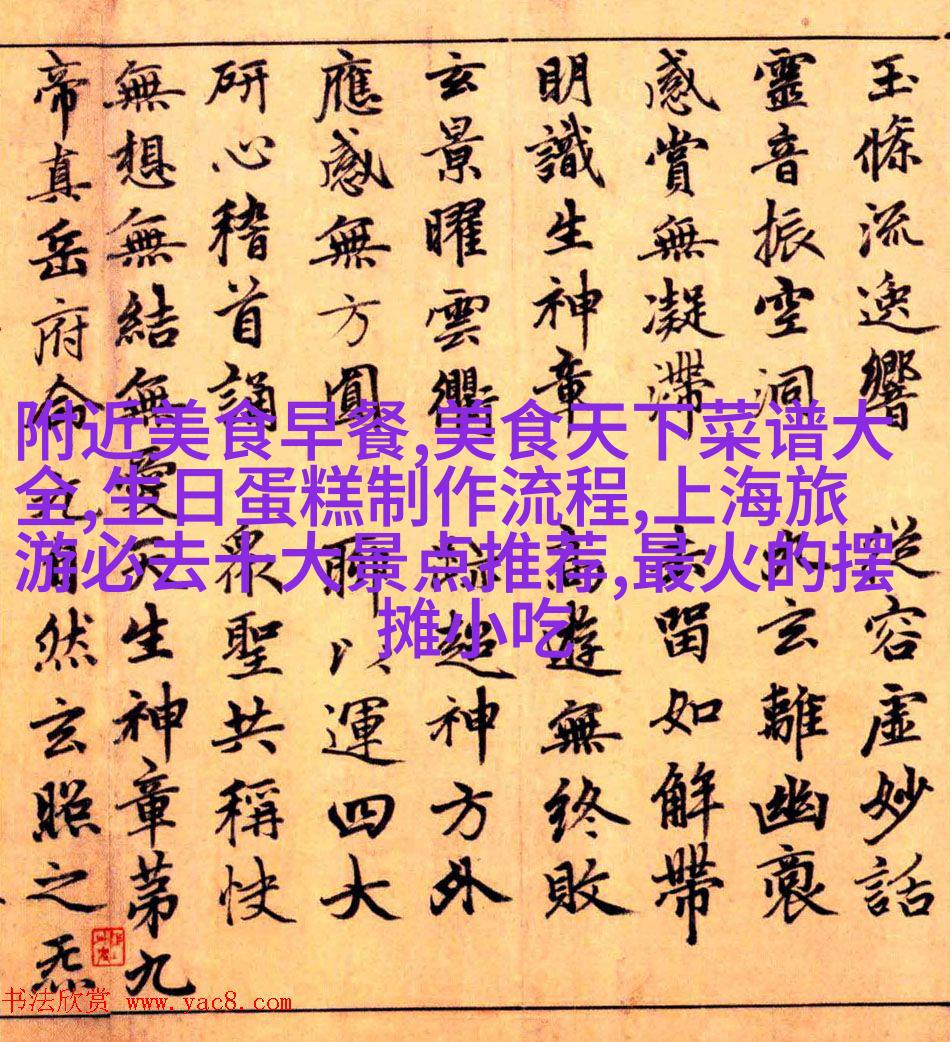 玉條流逸響 從容虛妙話
靈音振空洞 玄離幽
感賞無凝滯 去留如解帶
明識生神章 高遊無終敗
玄景曜雲衢 跡超神方外
應感無方圓 聊以運四大
研心稽首誦 衆聖共稱快
無想無結無愛天生神章第九
帝真岳府命元自然玄照之炁
附近美食早餐,美食天下菜谱大
全,生日蛋糕制作流程,上海旅
游必去十大景点推荐,最火的摆
摊小吃
书法欣赏 www.yac8.com